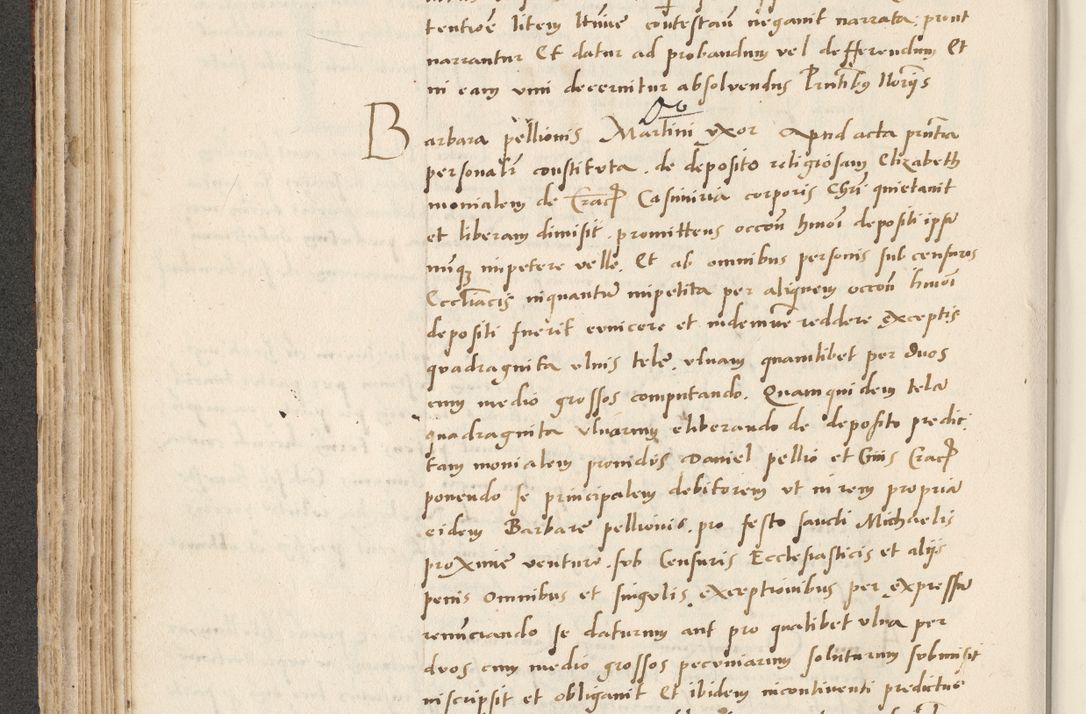 tentioē litem ltime contestañ negavit narrata prout
narrantur Et datur ad probandum vel defferendum Et
in eam vim decernitur absolvendus Prntibus Norijs
Barbara pellionis Martini vxor Apud acta prñta
personalr constituta . de deposito religiosam Elizabeth
monialem de Cracp Casimiria corporis Chri quietavit
et liberam dimisit . promittens occoñ hmoi depositi ipsã
nũqz impetere velle . Et ab omnibus personis sub censuris
Eccliacis inquantũ impetita per aliquem occoñ hmoi
depositi fuerit evincere et indemnẽ reddere exceptis
quadraginta vlnis tele . vlnam quamlibet per duos
cum medio grossos computando . Quamquidem tela
quadraginta vlnarum eliberando de deposito predic
tam monialem providus Daniel pellio et Civis Cracp
ponendo se principalem debitorem vt in rem propria
eidem Barbare pellionis . pro festo sancti Michaelis
proxime venturo . sub Censuris Ecclesiasticis et alijs
penis Omnibus et singulis exceptionibus per expressũ
renunciando se daturum aut pro qualibet vlna per
duos cum medio grossos pecuniarum soluturum submisit
inscripsit et obligavit Et ibidem incontinenti predictus